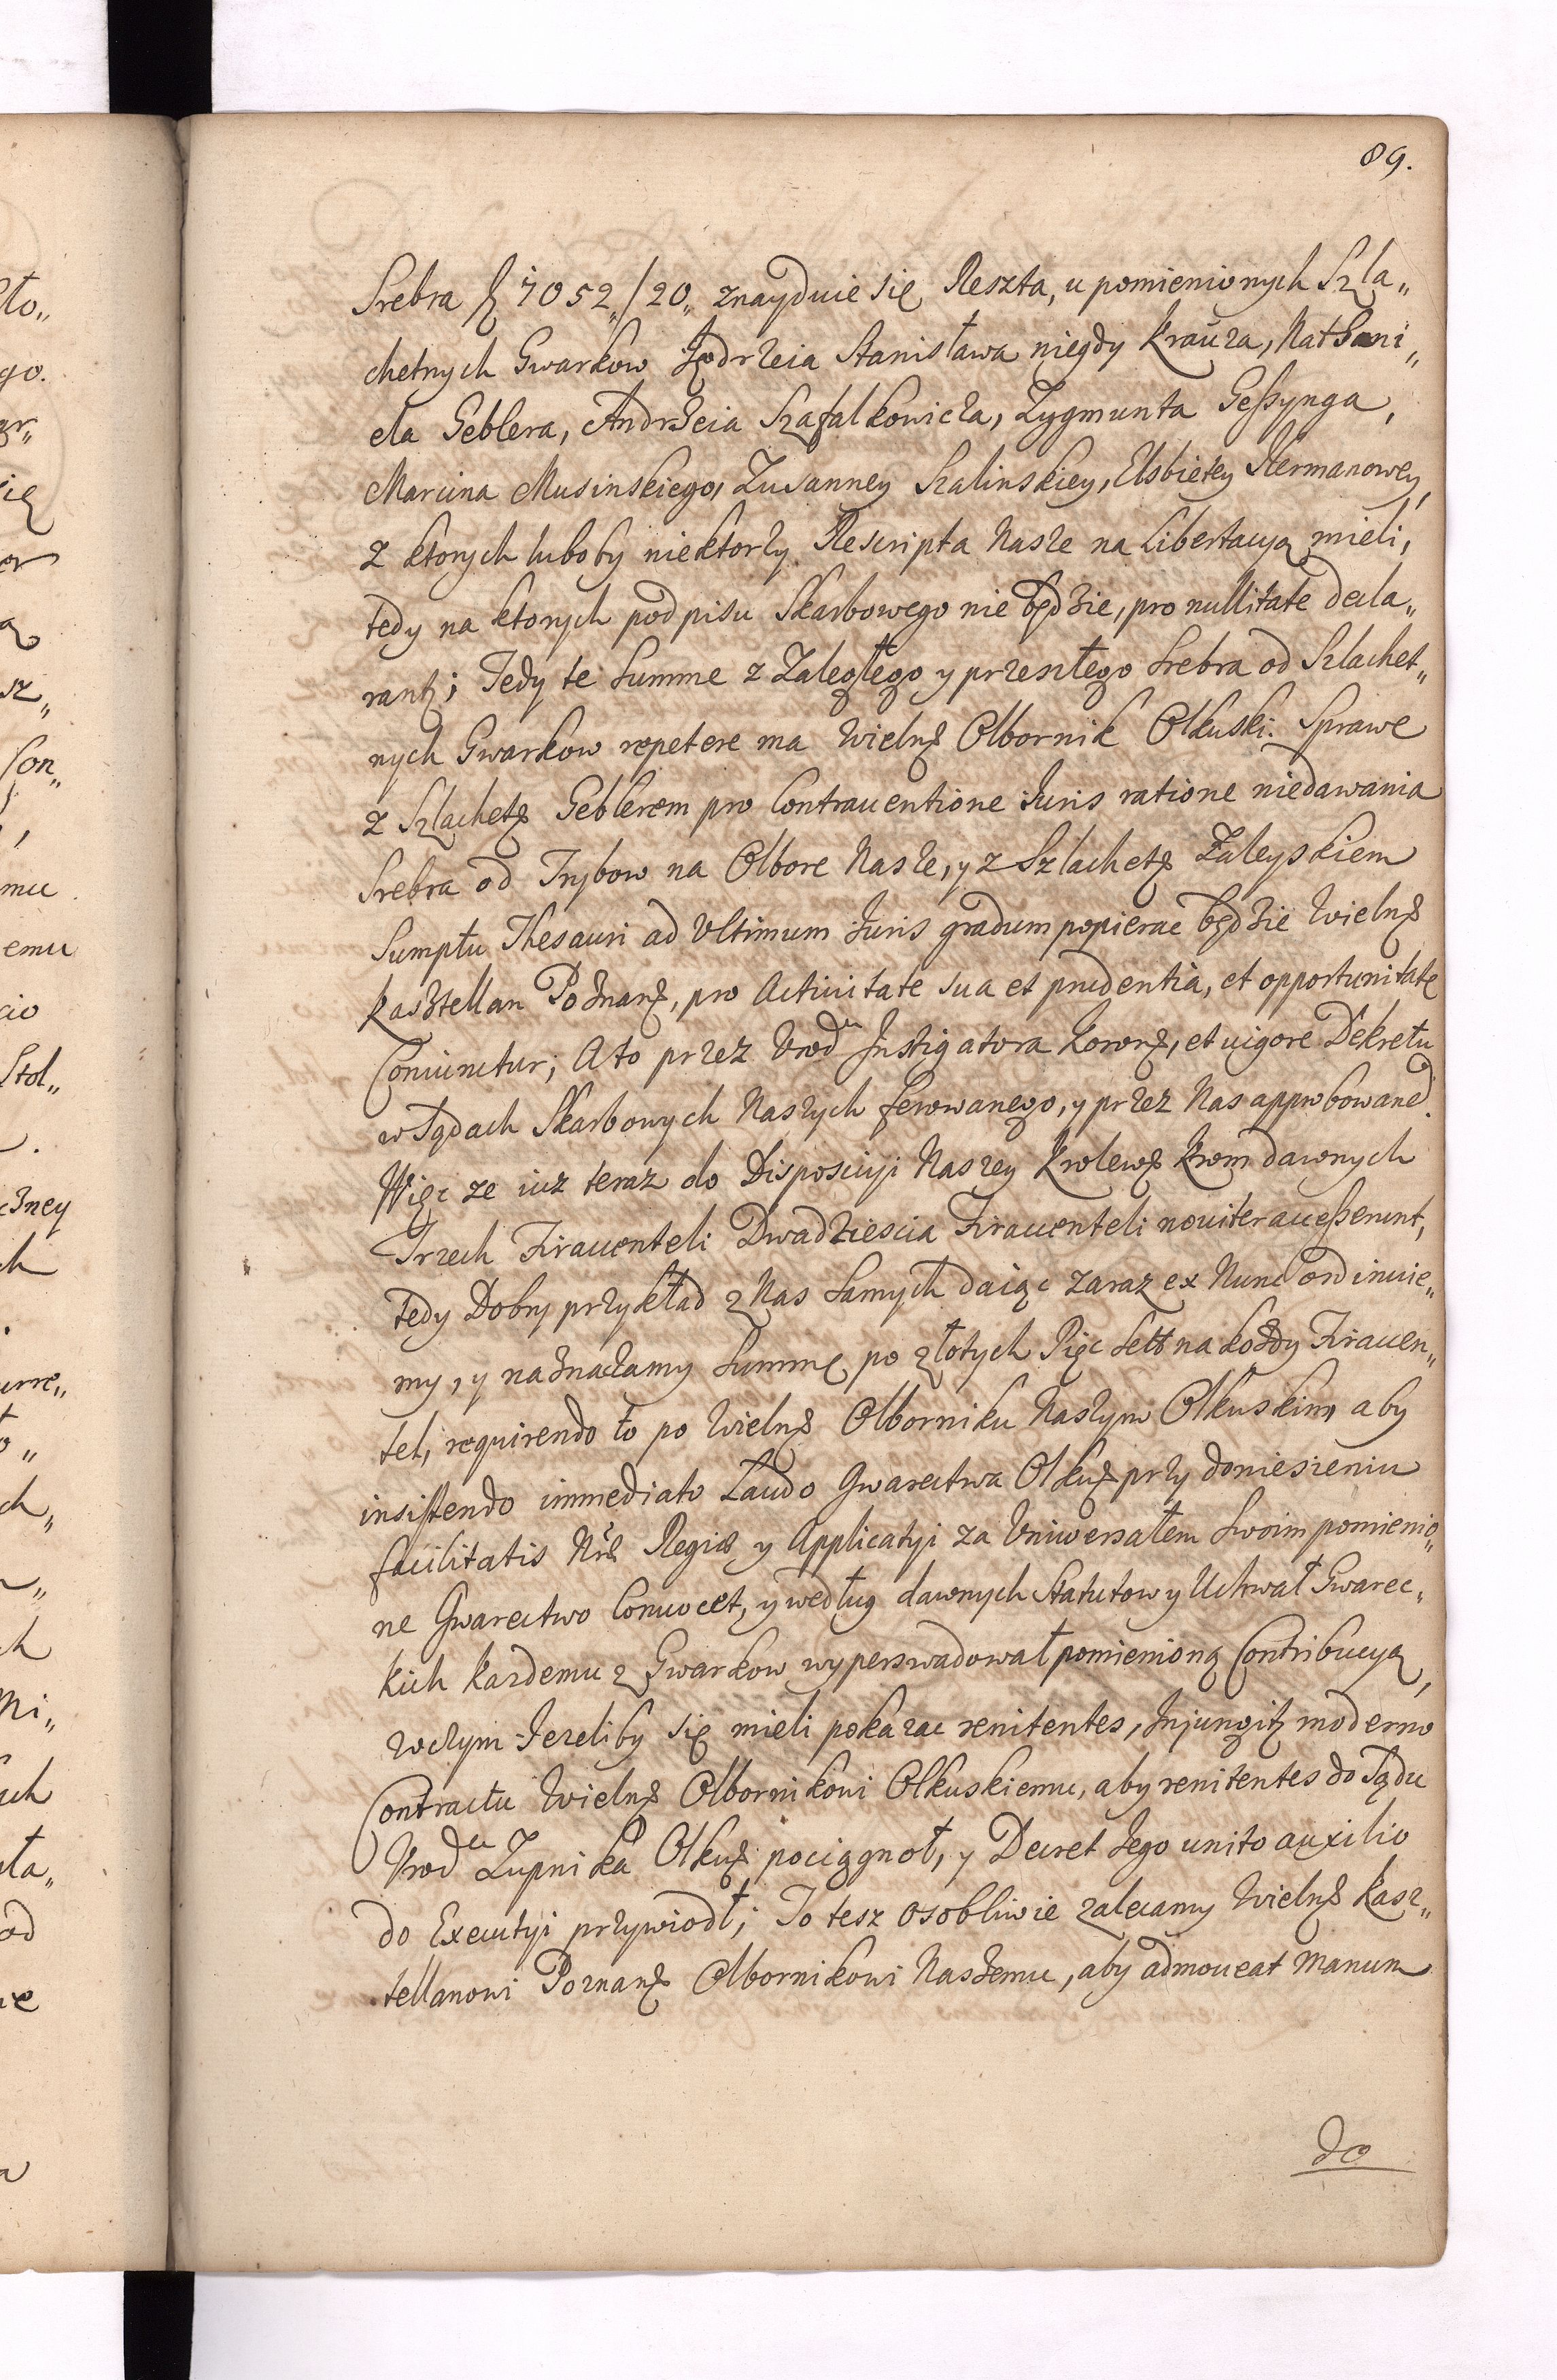 89.
Srebra 7052,,/20,, znayduie się Reszta, u pomienionych Szla„
chetnych Gwarkow Jędrzeia Stanisława niegdy Krauza, Nathani„
ela Geblera, Andrzeia Szafalkowicza, Zygmunta Gessynga,
Marcina Musinskiego, Zusanney Szalinskiey, Elsbiety Hermanowey,
z ktorych luboby niektorzy Rescripta Nasze na Libertacyą mieli,
tedy na ktorych podpisu Skarbowego nie będzie, pro nullitate decla„
rant; Tedy te Summe z Zaległego y przeszłego Srebra od Szlachet„
nych Gwarkow repetere ma Wieln Olbornik Olkuski. Sprawe
z Szlachet Geblerem pro Contrauentione Iuris ratione niedawania
Srebra od Trybow na Olbore Nasze, y z Szlachet Zaleyskiem
Sumptu Thesauri ad Vltimum Iuris gradum popierac będzie Wieln
Kasztellan Poznan, pro Actiuitate sua et prudentia, et opportunitate
Coniunctur; A to przez Urod Instigatora Koron, et uigore Dekretu
w Sądach Skarbowych Naszych ferowanego, y przez Nas approbowane.
Więc ze iuz teraz do Disposicyi Naszey Krolew krom dawnych
Trzech Firauenteli Dwadziescia Firauenteli nouiter accesserunt,
tedy Dobry przykład z Nas Samych daiąc zaraz ex Nunc ordinuie„
my, y naznaczamy Summę po złotych Pięc Set na kozdy Firauen„
tel, requirendo to po Wieln Olborniku Naszym Olkuskim, aby
insistendo immediato Laudo Gwarectwa Olkus przy doniesieniu
facilitatis Nrae Regiae y Applicatyi za Uniwersałem Swoim pomienio„
ne Gwarectwo Conuocet, y według dawnych Statutow y Uchwał Gwarec„
kich kazdemu z Gwarkow wyperswadował pomienioną Contribucyą,
w czym Iezeliby się mieli pokazac renitentes, Injungitur moderno
Contractu Wieln Olbornikowi Olkuskiemu, aby renitentes do Sądu
Urod Zupnika Olkus pociągnoł, y Decret Iego unito auxilio
do Executyi przywiodł; To tesz osobliwie zalecamy Wieln Kasz„
tellanowi Poznan Olbornikowi Naszemu, aby admoueat manum
do